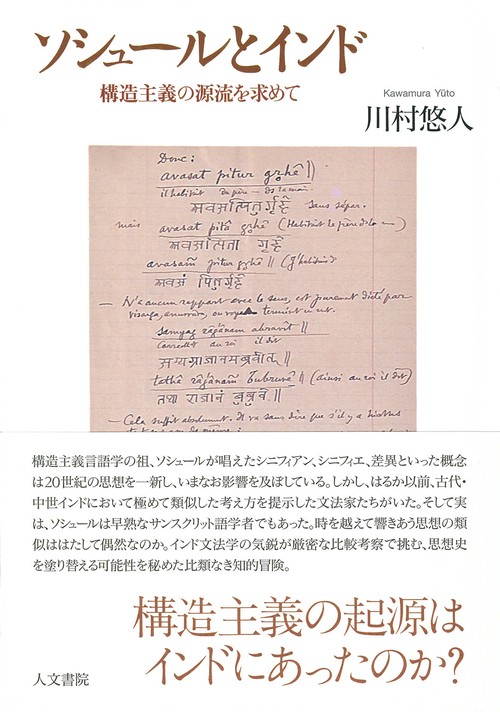 ソシュールとインド
構造主義の源流を求めて
Kawamura Yūto
川村悠人
Donc:
avasat pitur gṛhê ||
il habitait du père — ds la mais.
sans sépar.
mais avasat pitâ gṛhê (Habitait le père ds la —)
अवसत्पिता गृहे
avasaṁ pitur gṛhê || (J'habitais d
अवसं पितुर्गृहे
— N'a aucun rapport avec le sens, est purement dicté par
samyag râǵânam abravît ||
au roi il dit
सम्यग्राजानमब्रवीत् ||
tathâ râǵânaṁ bubruvê || (ainsi au roi il dit)
तथा राजानं बुब्रुवे ||
— Cela suffit absolument. Il va sans dire que s'il y a
構造主義言語学の祖、ソシュールが唱えたシニフィアン、シニフィエ、差異といった概念
は20世紀の思想を一新し、いまなお影響を及ぼしている。しかし、はるか以前、古代・
中世インドにおいて極めて類似した考え方を提示した文法家たちがいた。そして実
は、ソシュールは早熟なサンスクリット語学者でもあった。時を越えて響きあう思想の類
似ははたして偶然なのか。インド文法学の気鋭が厳密な比較考察で挑む、思想史
を塗り替える可能性を秘めた比類なき知的冒険。
構造主義の起源は
インドにあったのか?
人文書院